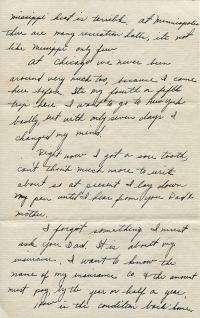 missippi heat is terrible. at Minneapolis
there are many recreation halls, its not
like Missippi only few
at Chicago we never been
around very much too, because I came
here before. Its my fourth or fifth
trip here. I want to go to New York
badly, but with only seven days I
changed my mind.
Right now I got a sore tooth,
can't think much more to write
about so at present I lay down
my pen until I hear from you Dad &
mother.
I forgot something I must
ask you Dad. It is about my
insurance. I want to know the
name of my insurance Co. & the amount
must pay by the year or half a year.
How is the condition back home,